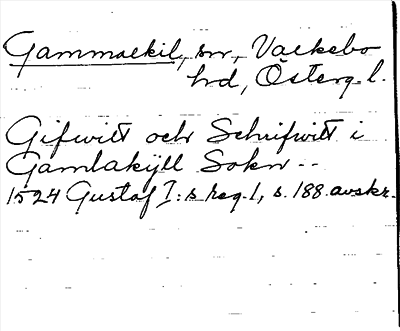 Gammalkil, sn, Valkebo
hd, Österg. l.
Gifwitt och Schrifwitt i
Gamlakijll Sokn --
1524 Gustaf I:s reg. 1, s. 188. avskr.